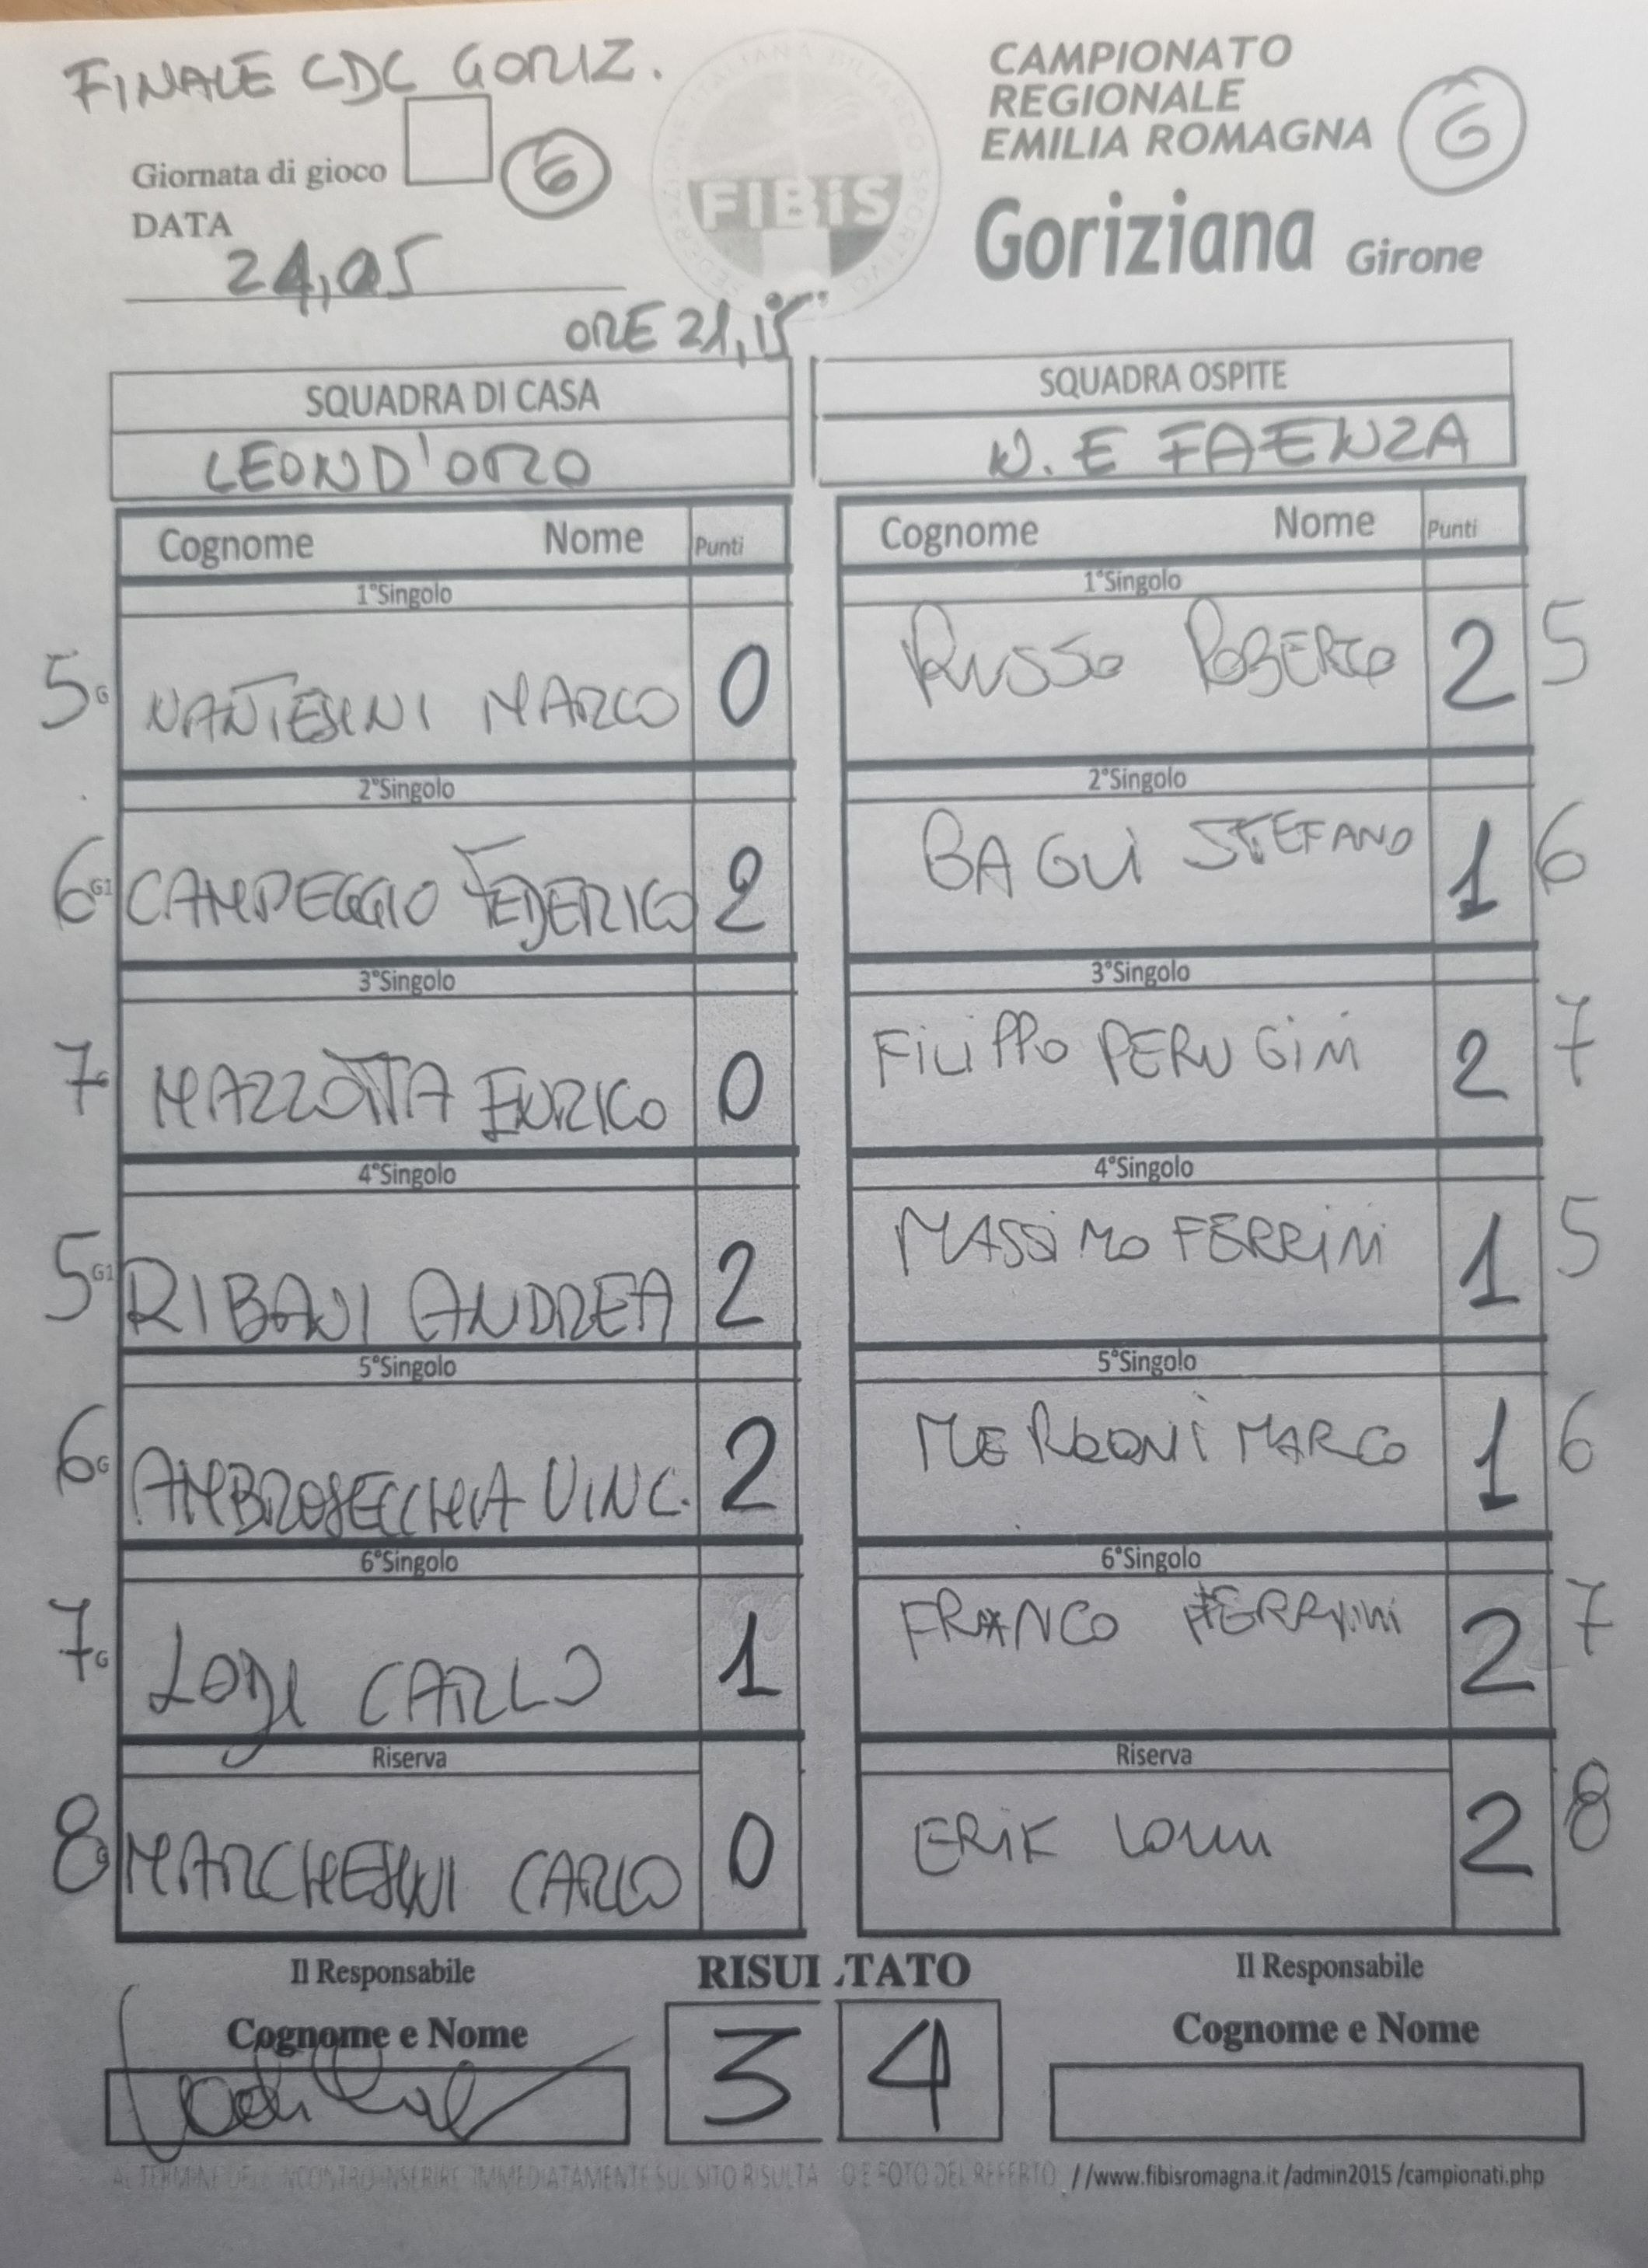 FINALE CDC GORIZ.
Giornata di gioco 6
DATA
24,05
ORE 21,15
FIBiS
CAMPIONATO
REGIONALE
EMILIA ROMAGNA
G
Goriziana Girone
SQUADRA DI CASA
LEON D'ORO
SQUADRA OSPITE
N.E FAENZA
Cognome Nome Punti
Cognome Nome Punti
1°Singolo
1°Singolo
5 G NANTESINI MARCO 0
RUSSO ROBERTO 2 5
2°Singolo
2°Singolo
6 G1 CAMPEGGIO FEDERICO 2
BAGUÌ STEFANO 1 6
3°Singolo
3°Singolo
7 MAZZOTTA ENRICO 0
FiLiPPO PERUGINI 2 7
4°Singolo
4°Singolo
5 G1 RIBANI ANDREA 2
MASSiMO FERRINI 1 5
5°Singolo
5°Singolo
6 G AMBROSECCHIA VINC. 2
MARCO 1 6
6°Singolo
6°Singolo
7 G LODI CARLO 1
FRANCO FERRINI 2 7
Riserva
Riserva
8 MARCHESINI CARLO 0
ERIK 2 8
Il Responsabile
RISULTATO
Il Responsabile
Cognome e Nome
3 4
Cognome e Nome
AL TERMINE DELL'INCONTRO INSERIRE IMMEDIATAMENTE SUL SITO RISULTATO E FOTO DEL REFERTO //www.fibisromagna.it/admin2015/campionati.php